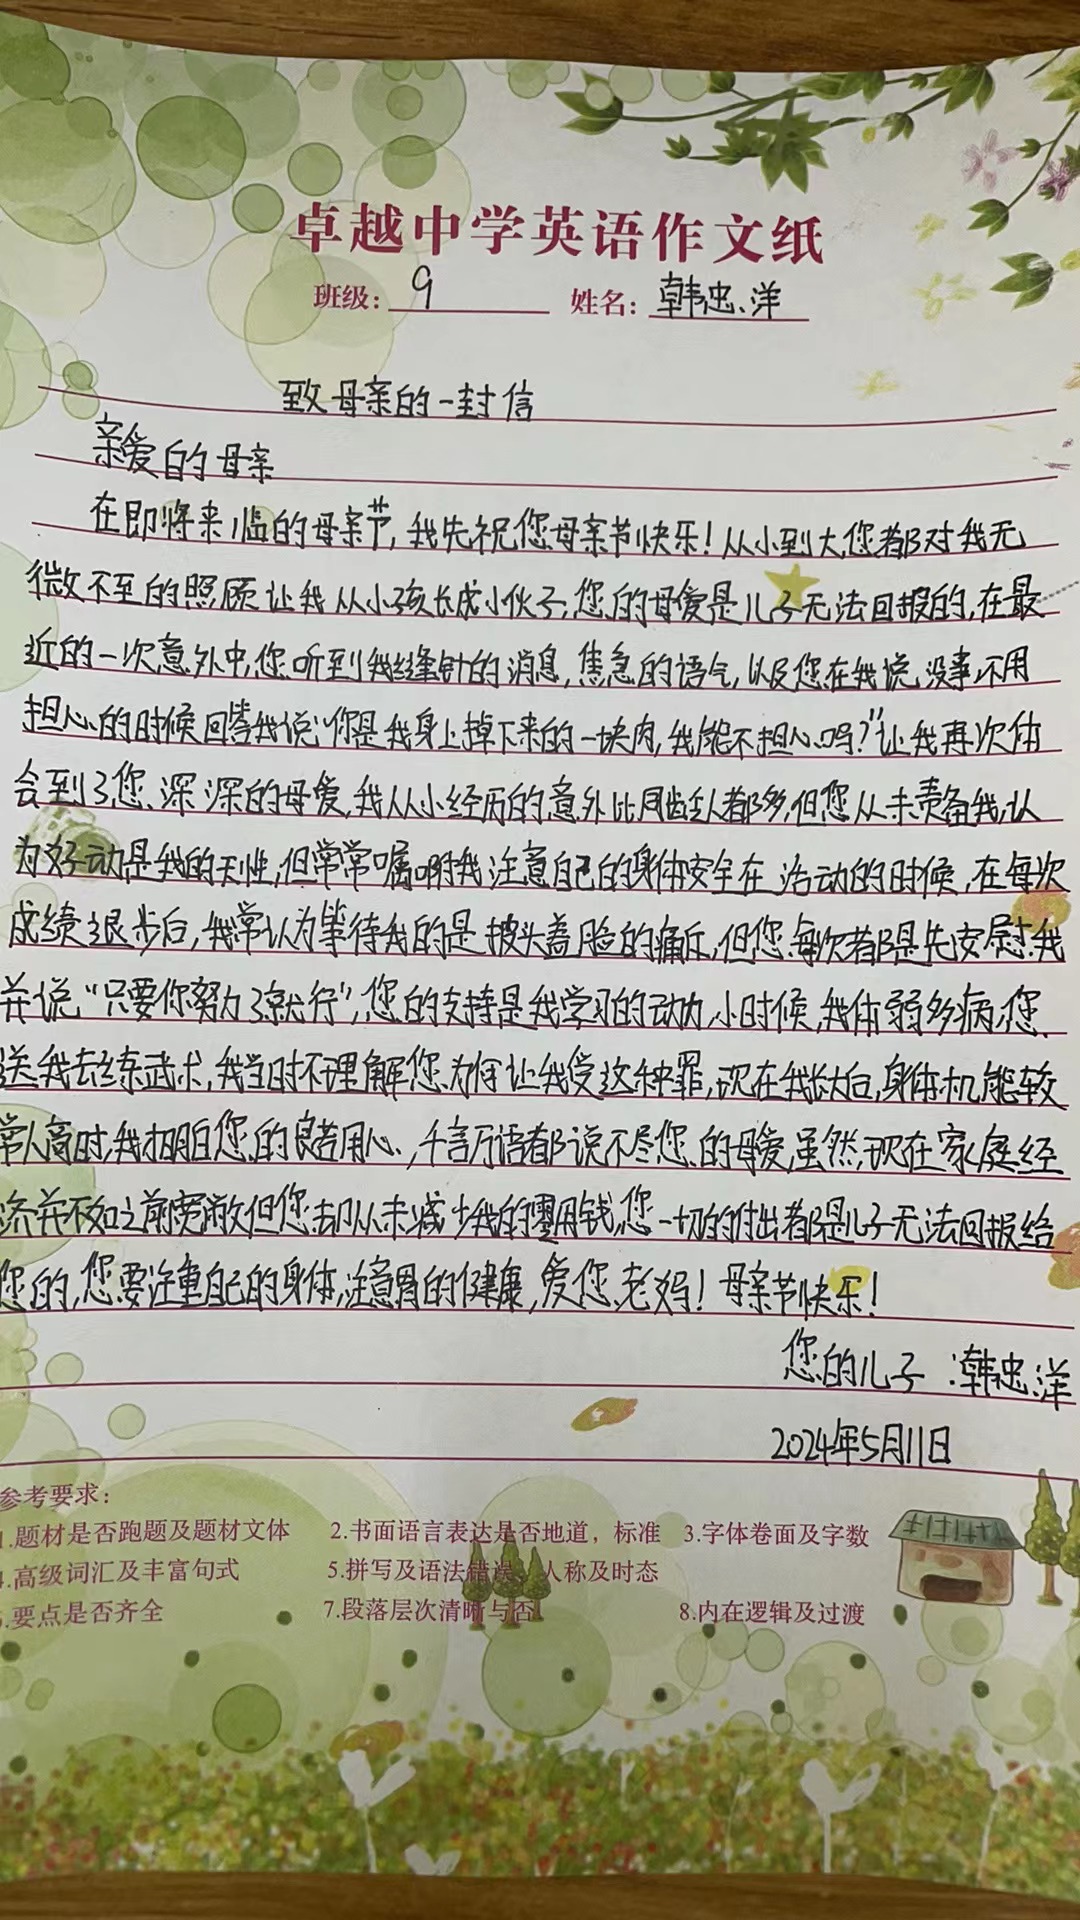 卓越中学英语作文纸
班级: 9 姓名: 韩忠洋
致母亲的一封信
亲爱的母亲
在即将来临的母亲节,我先祝您母亲节快乐!从小到大,您都对我无
微不至的照顾让我从小孩长成小伙子,您的母爱是儿子无法回报的,在最
近的一次意外中,您听到我缝针的消息,焦急的语气,以及您在我说没事,不用
担心的时候回答我说:“你是我身上掉下来的一块肉,我能不担心吗?”让我再次体
会到了您深深的母爱,我从小经历的意外比同龄人都多,但您从未责备我,认
为好动是我的天性,但常常嘱咐我注意自己的身体安全在活动的时候,在每次
成绩退步后,我常认为等待我的是披头盖脸的痛斥,但您每次都是先安慰我
并说“只要你努力了就行”,您的支持是我学习的动力,小时候,我体弱多病,您
送我去练武术,我当时不理解您为何让我受这种罪,现在我长大后,身体机能较
常人高时,我才明白您的良苦用心,千言万语都说不尽您的母爱,虽然,现在家庭经
济并不如之前宽敞但您却从未减少我的零用钱,您一切的付出都是儿子无法回报给
您的,您要注重自己的身体,注意胃的健康,爱您,老妈!母亲节快乐!
您的儿子:韩忠洋
2024年5月11日
参考要求:
1.题材是否跑题及题材文体 2.书面语言表达是否地道，标准 3.字体卷面及字数
4.高级词汇及丰富句式 5.拼写及语法错误、人称及时态
6.要点是否齐全 7.段落层次清晰与否 8.内在逻辑及过渡